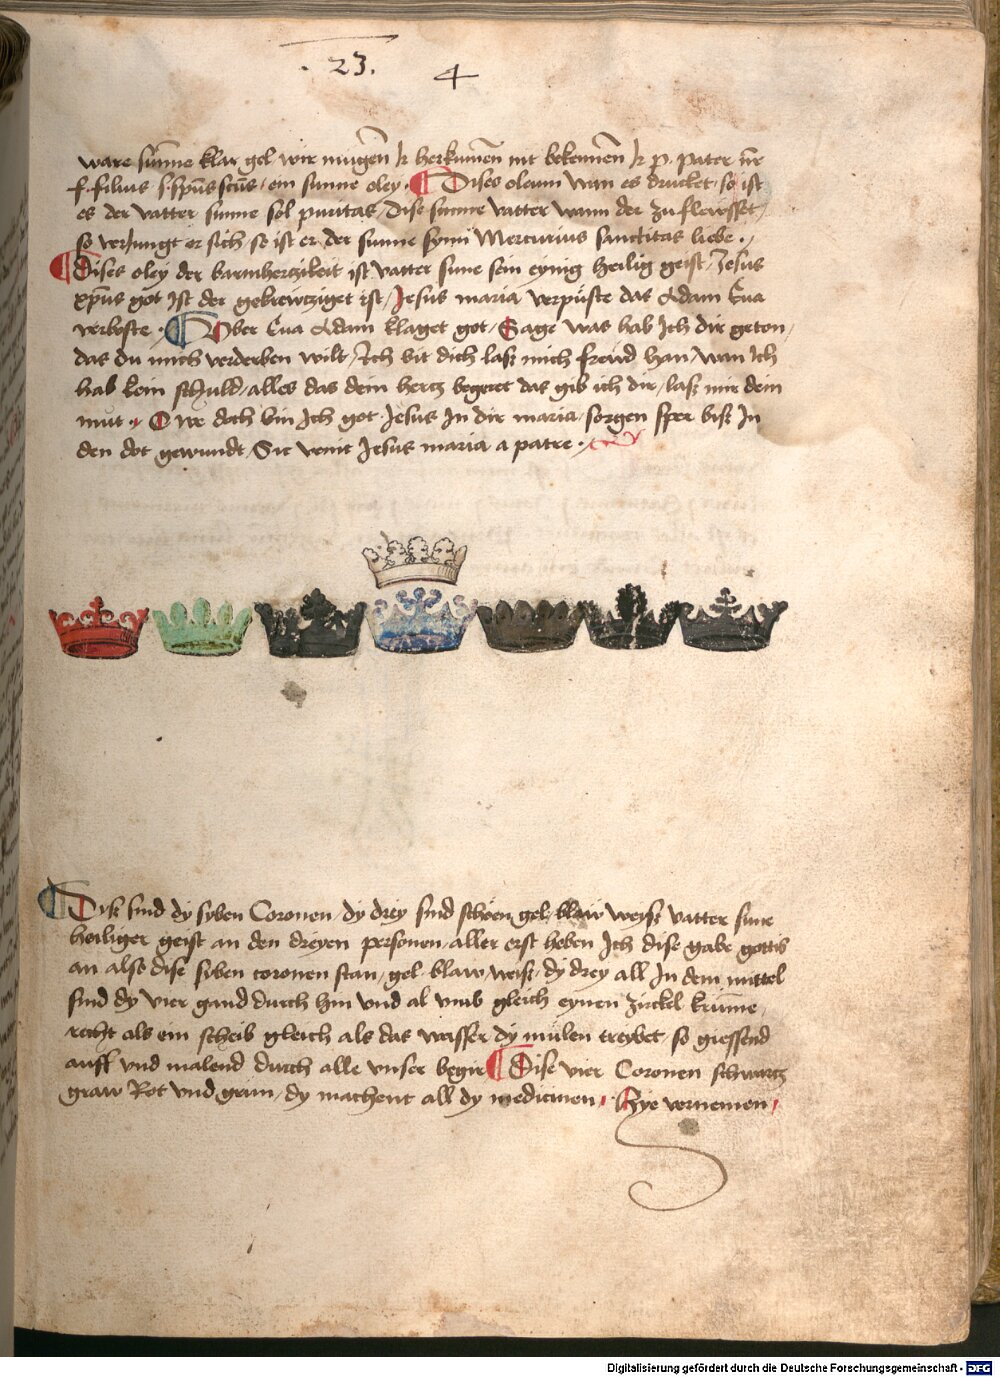 .23. 4
ware sun̄ne klar gel wir mugen̄ herkumen̄ nit bekennen̄ p. pater nr̄
f. filius s. spūs scūs / ein sunne oley. Dises oleum wan es drucket / so ist
es der vatter sunne sol puritas / dise sunne vatter wann der zuflewsset /
so verjungt er sich / so ist er der sunne synn Mercurius sanctitas liebe.
Dises oley der barmhertzikeit ist vatter sune sein eynig heilig geist / Jesus
xp̄us got Ist der gekrewtziget ist / Jesus maria verpuste das Adam Eua
verboste. Ober Eua Adam klaget got / Sage was hab Ich dir geton /
das du mich verderben wilt / Ich bit dich lass mich freud han / wan Ich
hab kein schuld / alles das dein hertz begeret das gib ich dir / lass mir dein
mut. O we doch bin Ich got Jesus In dir maria / sorgen sper biss In
den dot gewundt / Sic venit Jesus maria a patre.
Dyss sind dy syben Coronen / dy drey sind schoen gel / blaw weyss vatter sune
heiliger geist an den dreyen personen / aller erst heben Ich dise gabe gottis
an also dise siben coronen stan / gel blaw weiss / dy drey all In dem mittel
sind dy vier gand durch hin vnd al vmb gleich eynen zirckel krum̄e /
recht als ein scheib gleich als das wasser dy mulen treybet / so giessend
auff vnd malend durch alle vnser begir Dise vier Coronen schwartz
graw Rot vnd grün / dy machent all dy medicinen. Hye vernemen
Digitalisierung gefördert durch die Deutsche Forschungsgemeinschaft - DFG